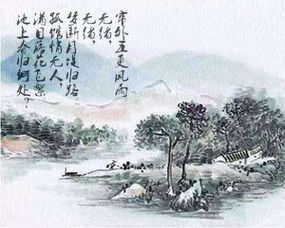 池上春归何处?
满目落花飞絮
孤馆悄无人,
梦断月堤归路
无绪,
无绪,
帘外五更风雨